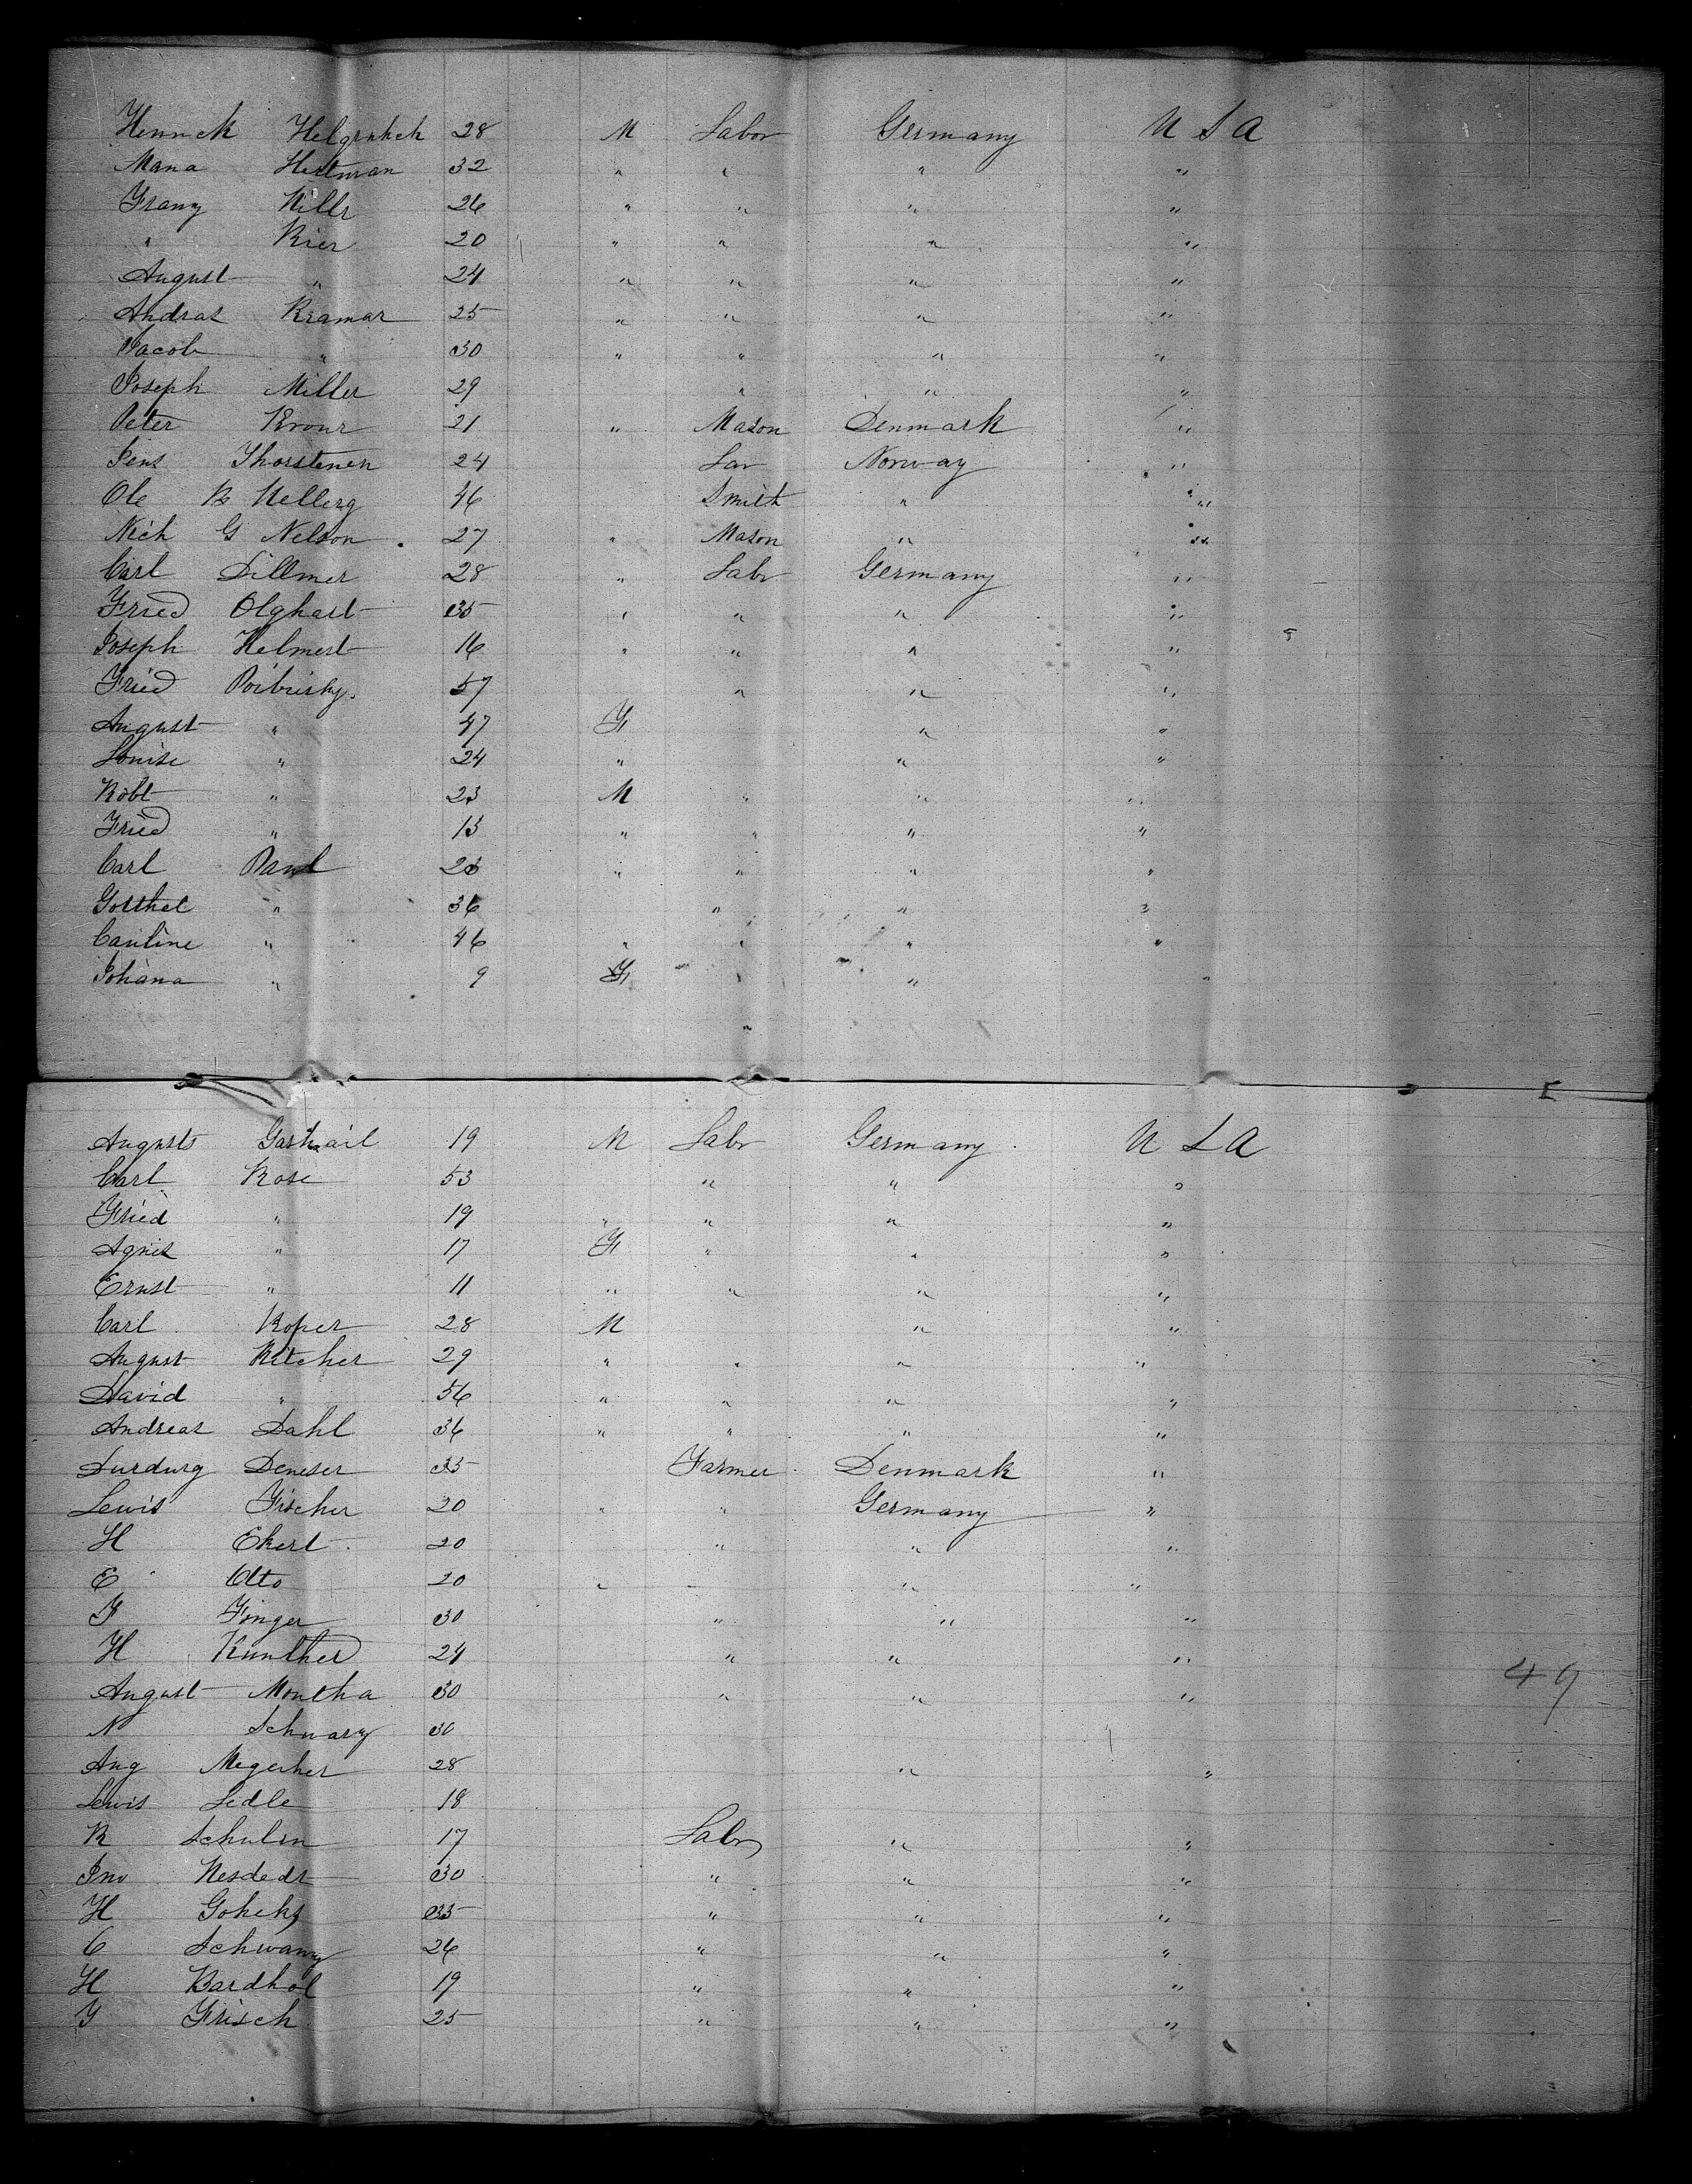 Hennck Helgrubeh 28 M Labor Germany U S A
Mana Hestman 32 " " " "
Franz Hills 26 " " " "
" Krier 20 " " " "
August " 24 " " " "
Andras Kramar 25 " " " "
Jacob " 30 " " " "
Joseph Miller 29 " " "
Peter Krour 21 " Mason Denmark "
Jens Thorstenen 24 Lar Norway "
Ole B Hellerg 46 Smith " "
Nich G Nelson 27 " Mason " "
Carl Dillmer 28 " Labr Germany "
Fried Olghart 35 " " " "
Joseph Helmert 16 " " " "
Fried Poibrisky 57 " " "
August " 47 F " "
Louise " 24 " " "
Robt " 23 M " " "
Fried " 13 " " " "
Carl Paul 23 " " " "
Gotthel " 36 " " "
Cauline " 46 " " " "
Johana " 9 F " " "
Augusts 19 M Labr Germany U S A
Carl Rose 53 " " "
Fried " 19 " " " "
Agnes " 17 F " " "
Ernst " 11 " " " "
Carl Roper 28 M " "
August Kitcher 29 " " " "
David " 56 " " " "
Andreas Dahl 36 " " " "
Durdurg Deneser 35 Farmer Denmark "
Lewis Fischer 20 " " Germany "
H Ekert 20 " " "
E Otto 20 " " "
F Finger 30 " " "
H Kunther 24 " " "
49
August Montha 30 " " "
N Schwarz 30
Aug Megerher 28 " "
Lewis Sedle 18
R Schulen 17 Labr " "
Jno Nesdedt 30 " " "
H Gohehs 35 " " "
C Schwanz 26 " " "
H Bardhol 19 " " "
F Frisch 25 " " "